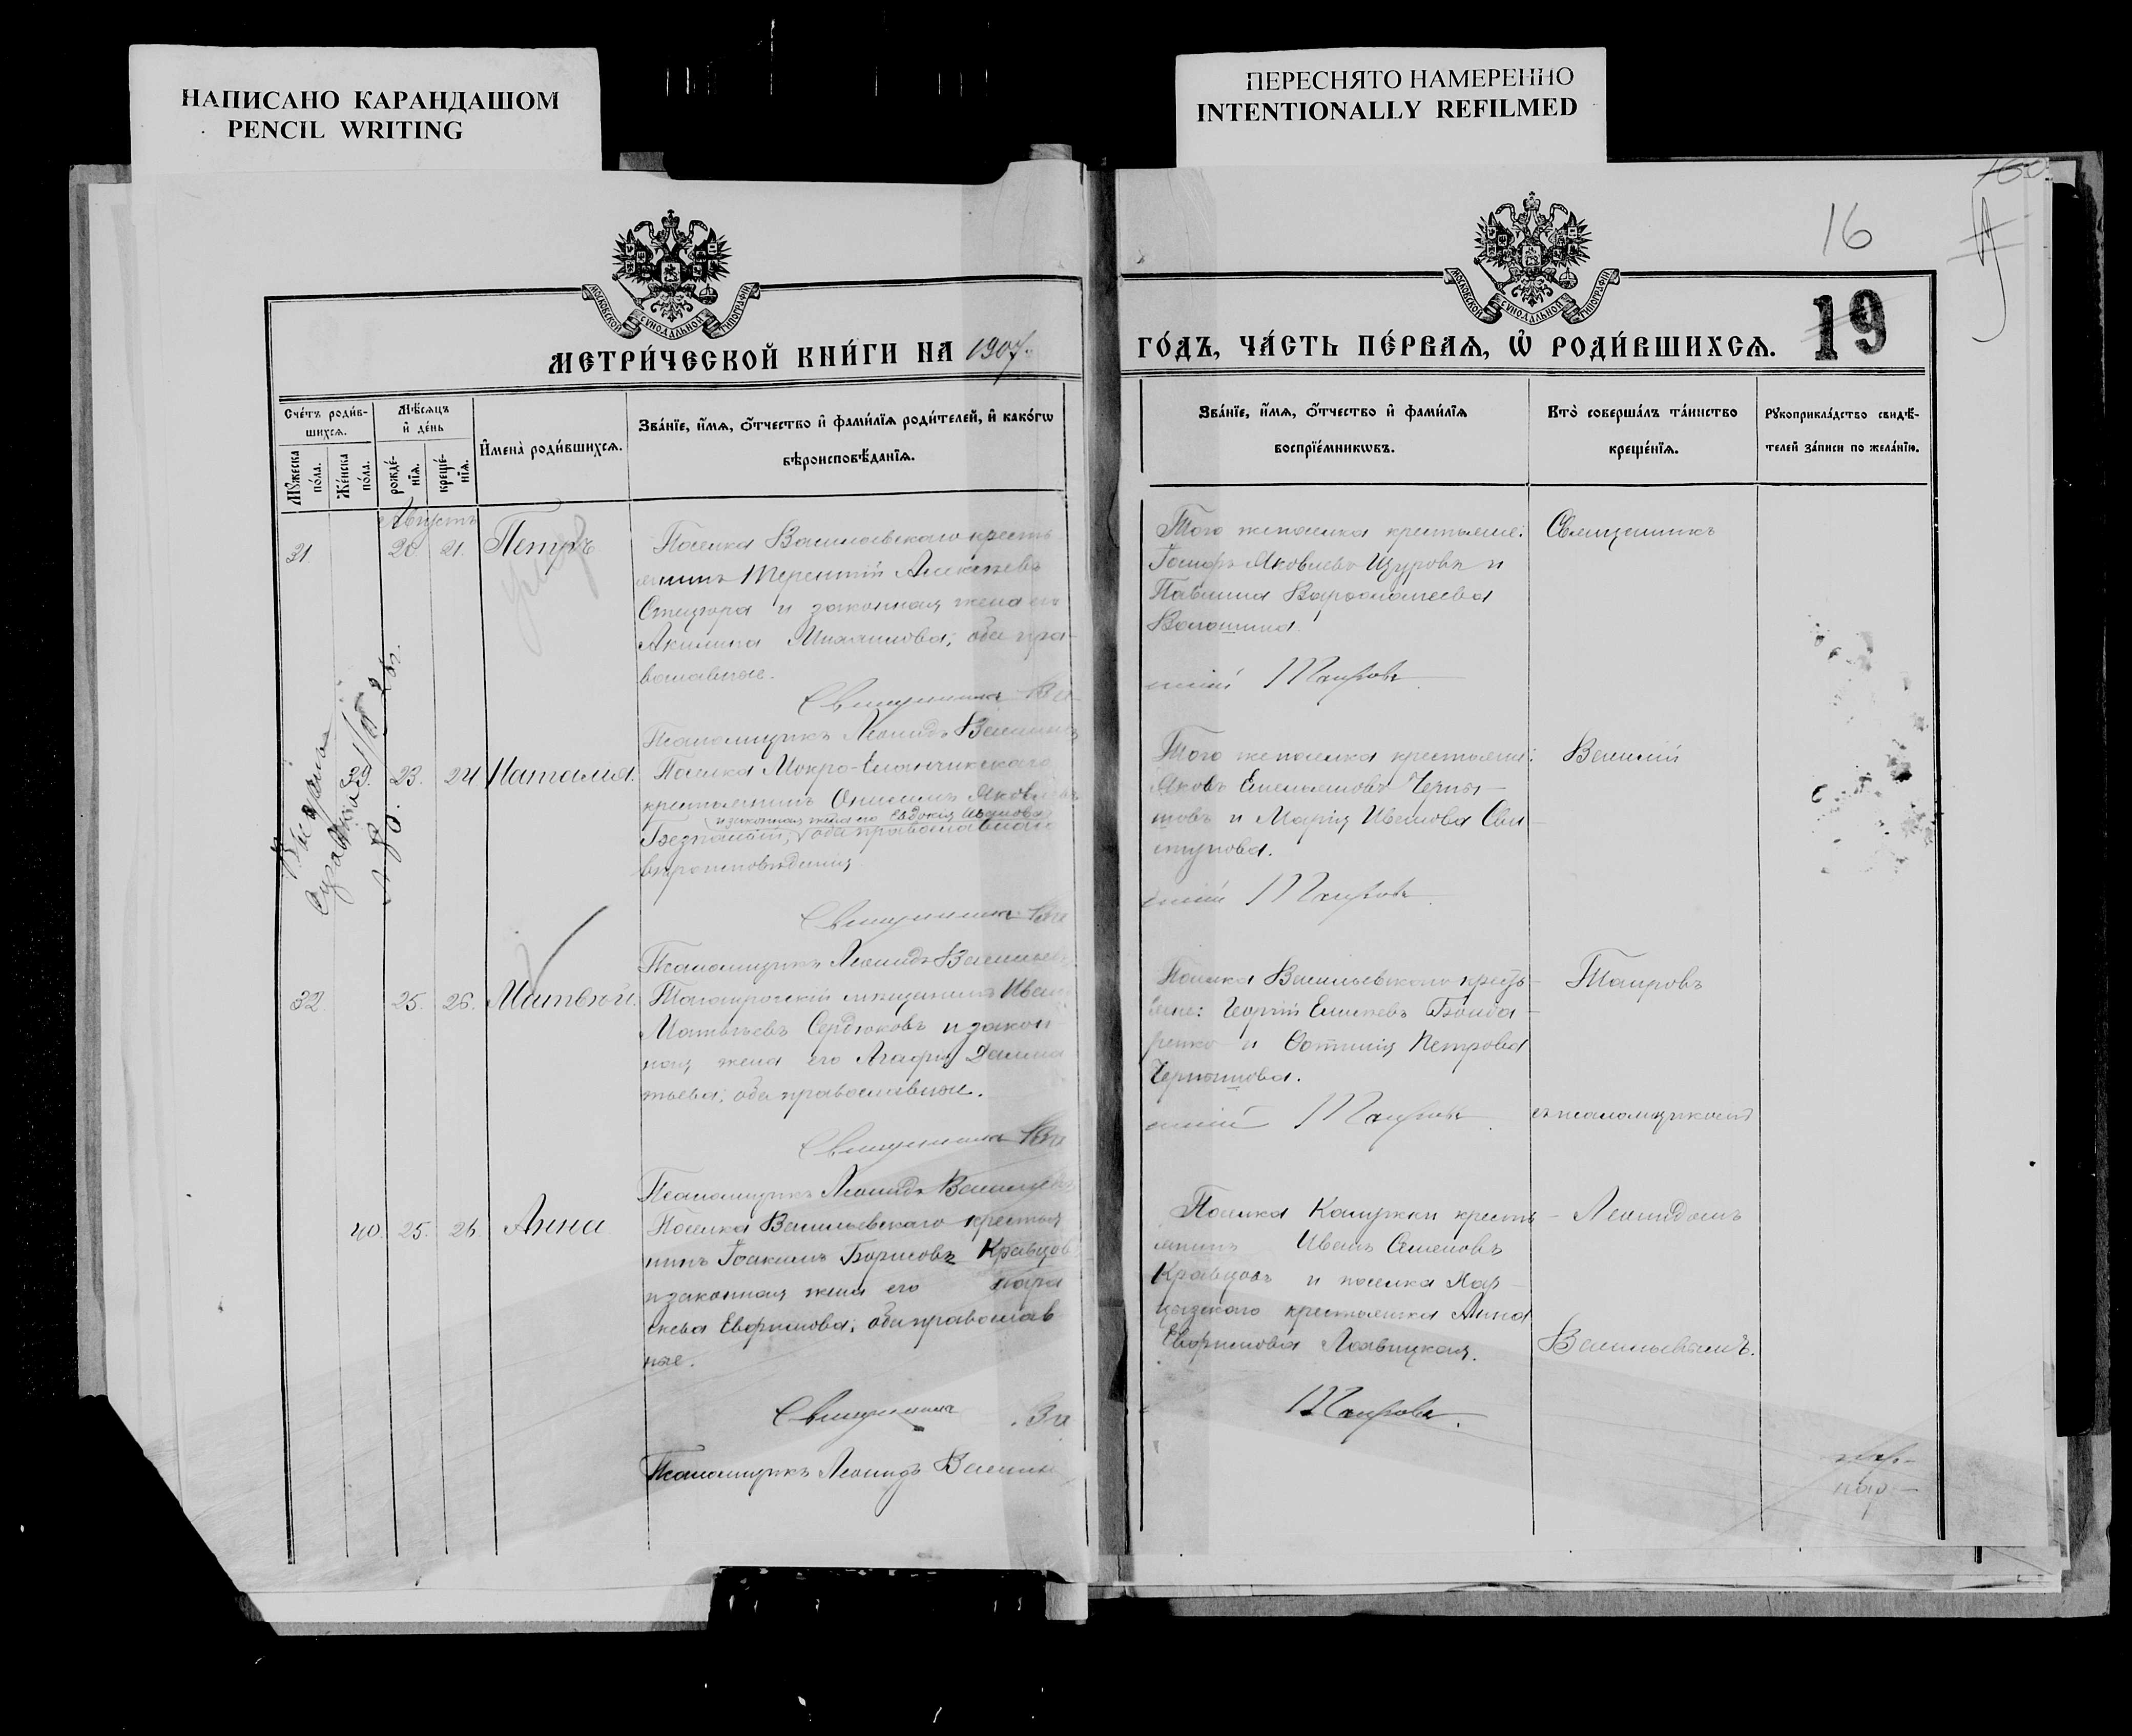 НАПИСАНО КАРАНДАШОМ
PENCIL WRITING
ПЕРЕСНЯТО НАМЕРЕННО
INTENTIONALLY REFILMED
16
19
МОСКОВСКОЙ СѴНОДАЛЬНОЙ ТИПОГРАФІИ
МОСКОВСКОЙ СѴНОДАЛЬНОЙ ТИПОГРАФІИ
МЕТРИ́ЧЕСКОЙ КНИ́ГИ НА 1907
ГО́ДЪ, ЧА́СТЬ ПЕ́РВАѦ, Ѡ҆ РОДИ́ВШИХСѦ.
Сче́тъ роди́в-
шихсѧ.
Мꙋжеска по́ла.
Же́нска по́ла.
Мѣ́сѧцъ
и҆ де́нь
рожде́-
нїѧ.
креще́-
нїѧ.
И҆мена̀ роди́вшихсѧ.
Зва́нїе, и҆́мѧ, ѻ҆́тчество и҆ фами́лїѧ роди́телей, и҆ како́гѡ
вѣроисповѣ́данїѧ.
Зва́нїе, и҆́мѧ, ѻ҆́тчество и҆ фами́лїѧ
воспрїе́мникѡвъ.
Кто̀ соверша́лъ та́инство
креще́нїѧ.
Рꙋкоприкла́дство свидѣ́-
телей за́писи по жела́нїю.
Августъ
31. 20. 21. Петръ
Поселка Васильевскаго кресть
янинъ Терентій Алексѣевъ
и законная жена его
Акилина оба пра-
вославные.
Священникъ Ва
Псаломщикъ Леонидъ Васильевъ
Того же поселка крестьяне:
Іосифъ Яковлевъ Цуровъ и
Павлина Варѳоломеева
Волошина.
силій Таировъ
Священникъ
39. 23. 24 Наталия.
Поселка Мокро-Еланчикскаго
крестьянинъ Онисимъ Яковлевъ
и законная жена его Евдокія Иванова
оба православнаго
вѣроисповѣданія.
Священникъ Ва
Псаломщикъ Леонидъ Васильевъ
Того же поселка крестьяне:
Яковъ Емельяновъ Черны-
шовъ и Марія Иванова Сви-
стунова.
силій Таировъ
Василій
32. 25. 26. Матвѣй.
Таганрогскій мѣщанинъ Иван
Матвѣевъ Сердюковъ и закон
ная жена его Агафія
оба православные.
Священникъ Ва
Псаломщикъ Леонидъ Васильевъ
Поселка Васильевскаго кресть-
яне: Георгій Бонда-
ренко и Фотинія Петрова
Чернышова.
силій Таировъ
Таировъ
съ псаломщикомъ
40. 25. 26. Анна
Поселка Васильевскаго крестья
нинъ Іоакимъ Борисовъ Кравцов
и законная жена его Пара
скева Евфимова; оба православ
ные.
Священникъ Ва
Псаломщикъ Леонидъ Василье
Поселка Калужки кресть-
янинъ Иванъ Семеновъ
Кравцовъ и поселка Хар-
цызскаго крестьянка Анна
Евфимова
Таировъ.
Леонидомъ
Васильевымъ.